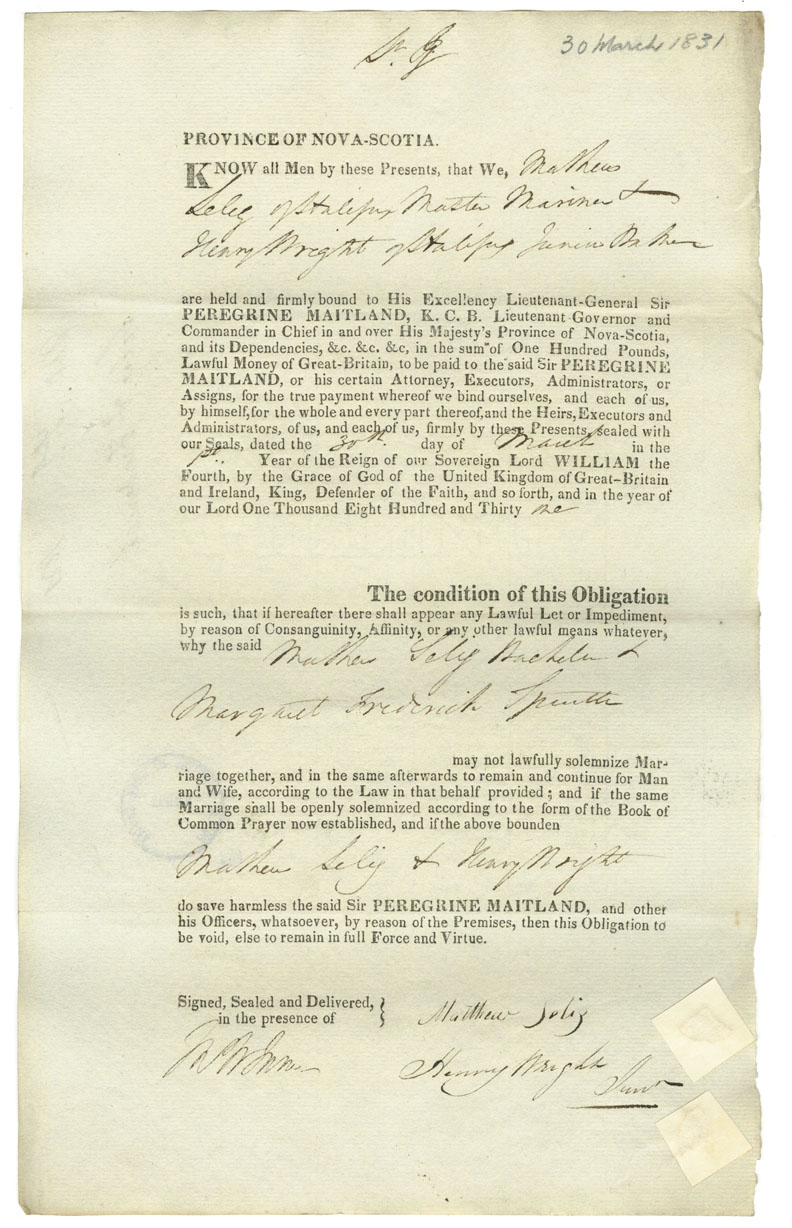 30 March 1831
PROVINCE OF NOVA-SCOTIA.
KNOW all Men by these Presents, that We, Mathew
Selig of Halifax Master Mariner &
Henry Wright of Halifax Junior Baker
are held and firmly bound to His Excellency Lieutenant-General Sir
PEREGRINE MAITLAND, K. C. B. Lieutenant Governor and
Commander in Chief in and over His Majesty's Province of Nova-Scotia,
and its Dependencies, &c. &c. &c, in the sum of One Hundred Pounds,
Lawful Money of Great-Britain, to be paid to the said Sir PEREGRINE
MAITLAND, or his certain Attorney, Executors, Administrators, or
Assigns, for the true payment whereof we bind ourselves, and each of us,
by himself, for the whole and every part thereof, and the Heirs, Executors and
Administrators, of us, and each of us, firmly by these Presents, sealed with
our Seals, dated the 30th day of March in the
1st. Year of the Reign of our Sovereign Lord WILLIAM the
Fourth, by the Grace of God of the United Kingdom of Great-Britain
and Ireland, King, Defender of the Faith, and so forth, and in the year of
our Lord One Thousand Eight Hundred and Thirty one
The condition of this Obligation
is such, that if hereafter there shall appear any Lawful Let or Impediment,
by reason of Consanguinity, Affinity, or any other lawful means whatever,
why the said Mathew Selig Bachelor &
Margaret Frederick Spinster
may not lawfully solemnize Mar-
riage together, and in the same afterwards to remain and continue for Man
and Wife, according to the Law in that behalf provided; and if the same
Marriage shall be openly solemnized according to the form of the Book of
Common Prayer now established, and if the above bounden
Mathew Selig & Henry Wright
do save harmless the said Sir PEREGRINE MAITLAND, and other
his Officers, whatsoever, by reason of the Premises, then this Obligation to
be void, else to remain in full Force and Virtue.
Signed, Sealed and Delivered,
in the presence of
Matthew Selig
Henry Wright
Junr